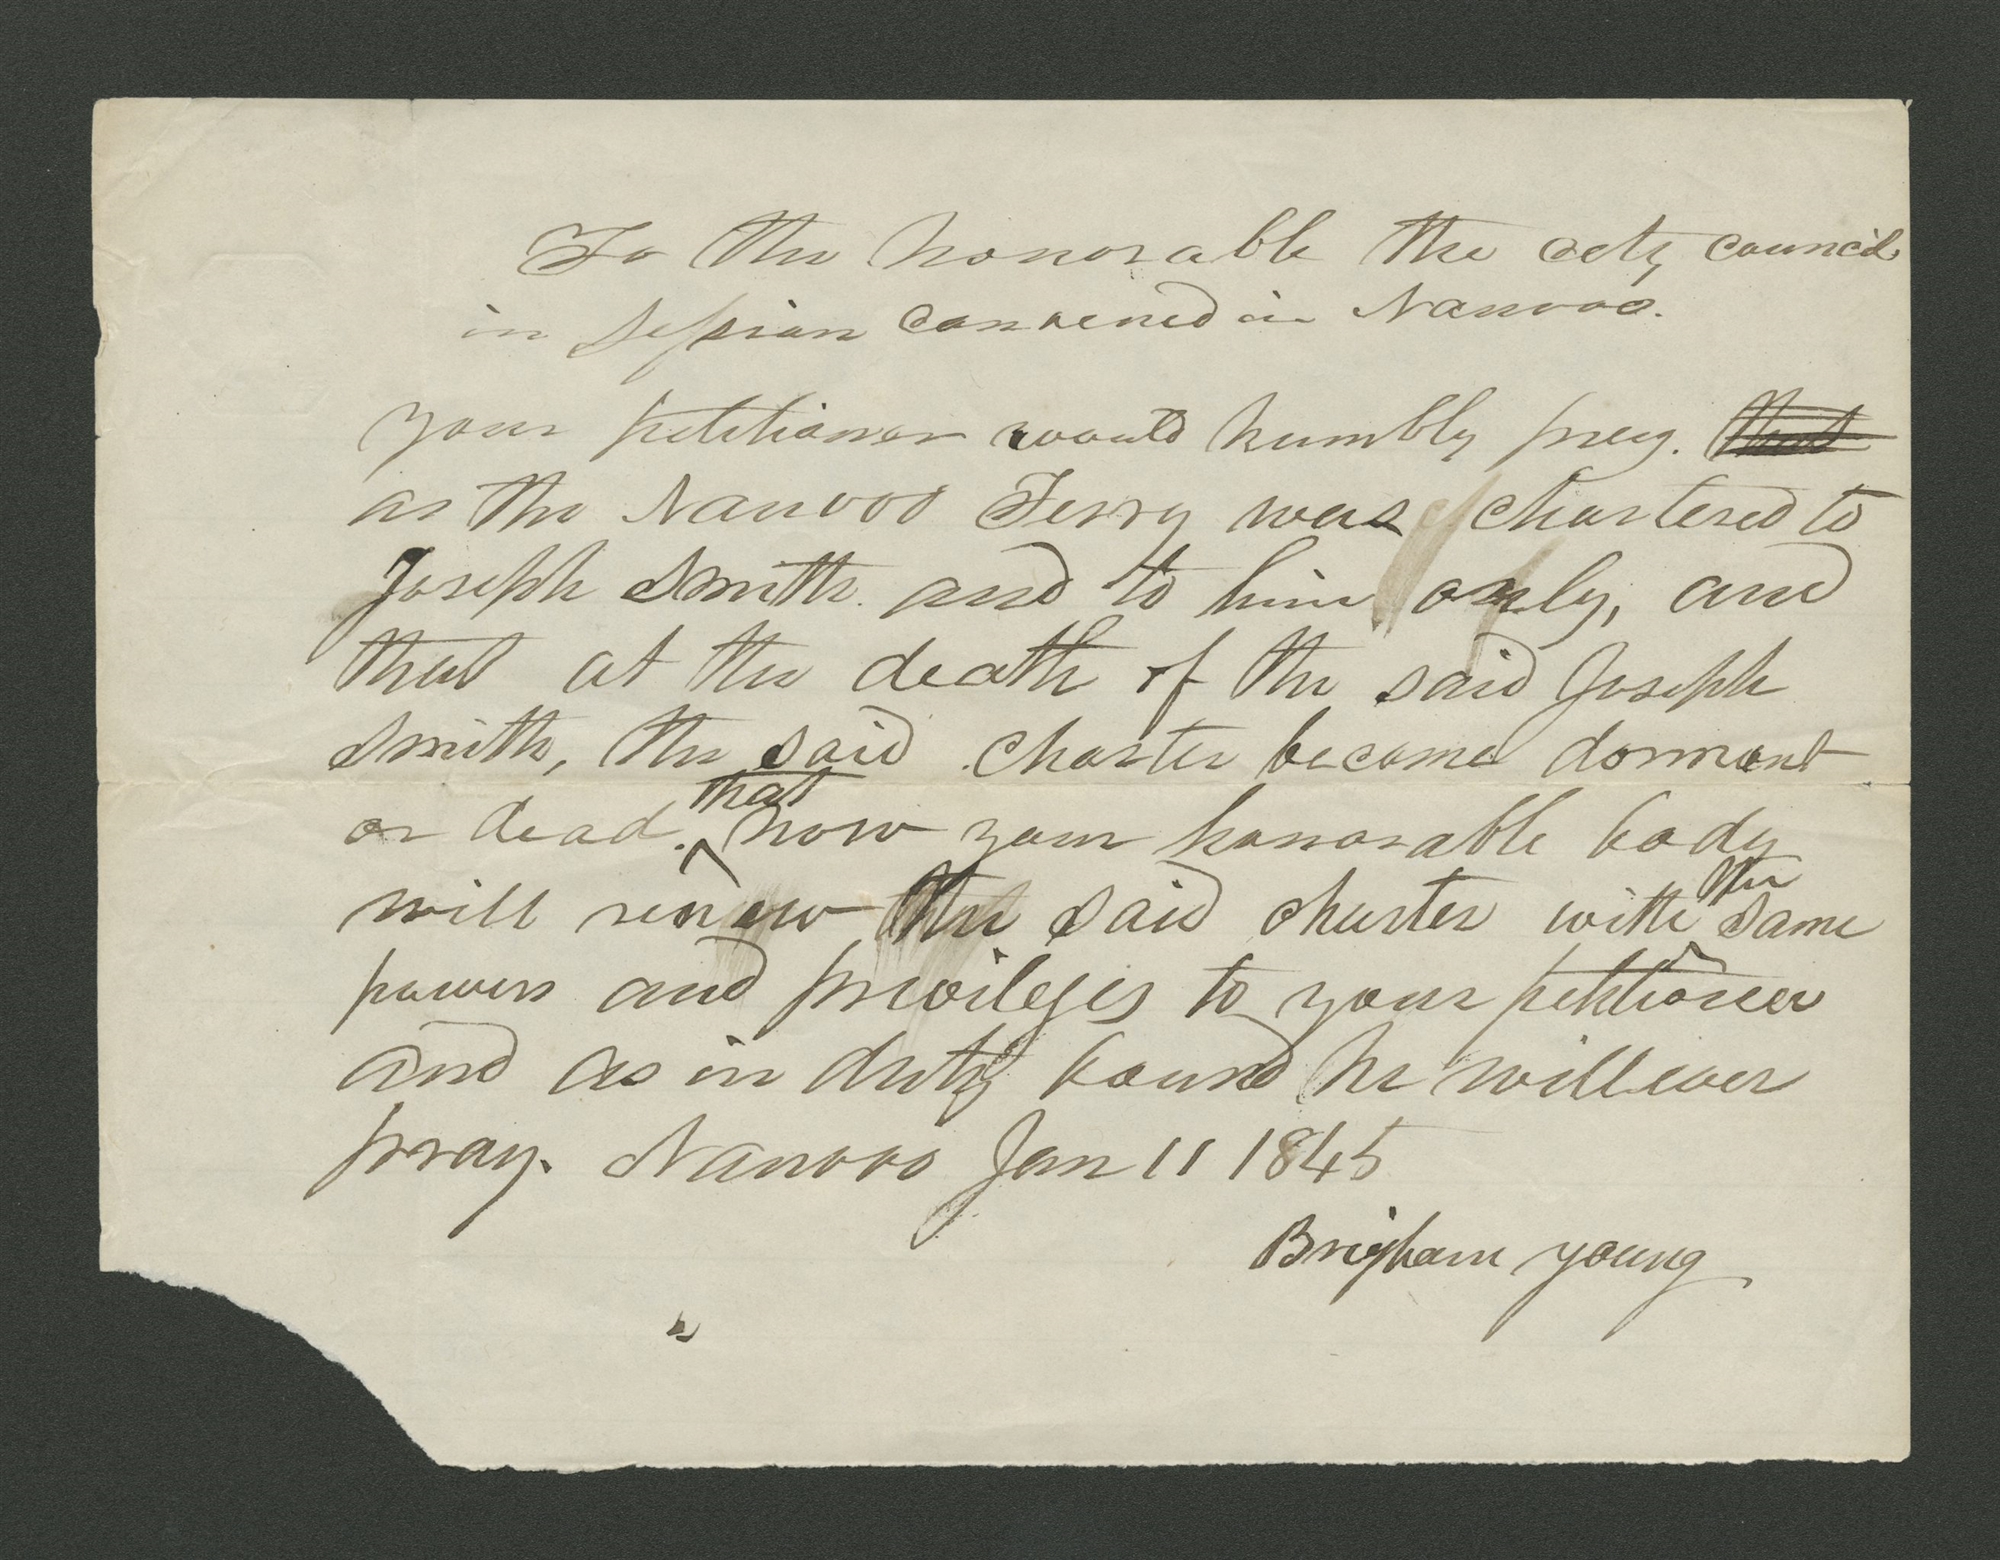 To the honorable the city council
in session convened in Nauvoo.
Your petitioner would humbly pray. that
as the Nauvoo Ferry was chartered to
Joseph Smith. and to him only, and
that at the death of the said Joseph
Smith, the said charter became dormant
or dead. that now your honorable body
will renew the said charter with the same
powers and privileges to your petitioner
and as in duty bound he will ever
pray. Nauvoo Jan 11 1845
Brigham young